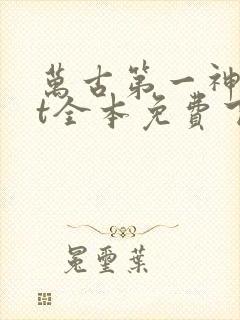 萬古第一神
t全本免費
冕璽葉